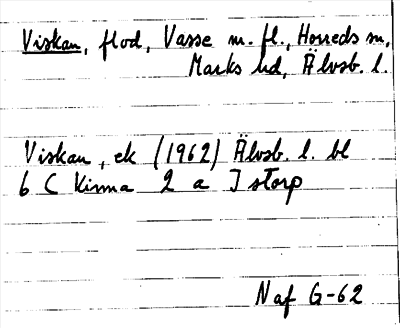 Viskan, flod, Vasse m. fl., Horreds sn,
Marks hd, Älvsb. l.
Viskan, ek (1962) Älvsb. l. bl
6 C Kinna 2 a Istorp
Naf G-62